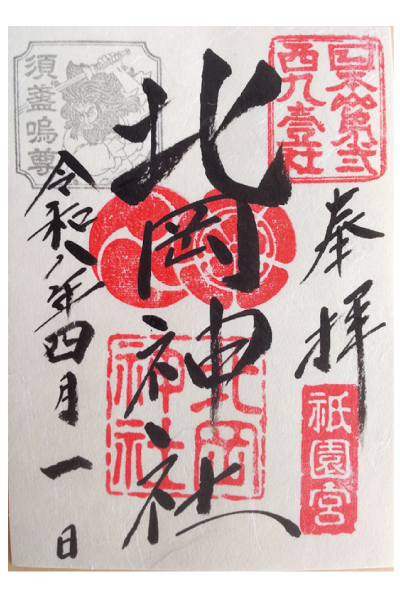 奉拝
祇園宮
西九壹社
北岡神社
北岡
神社
須盞嗚尊
令和八年四月一日